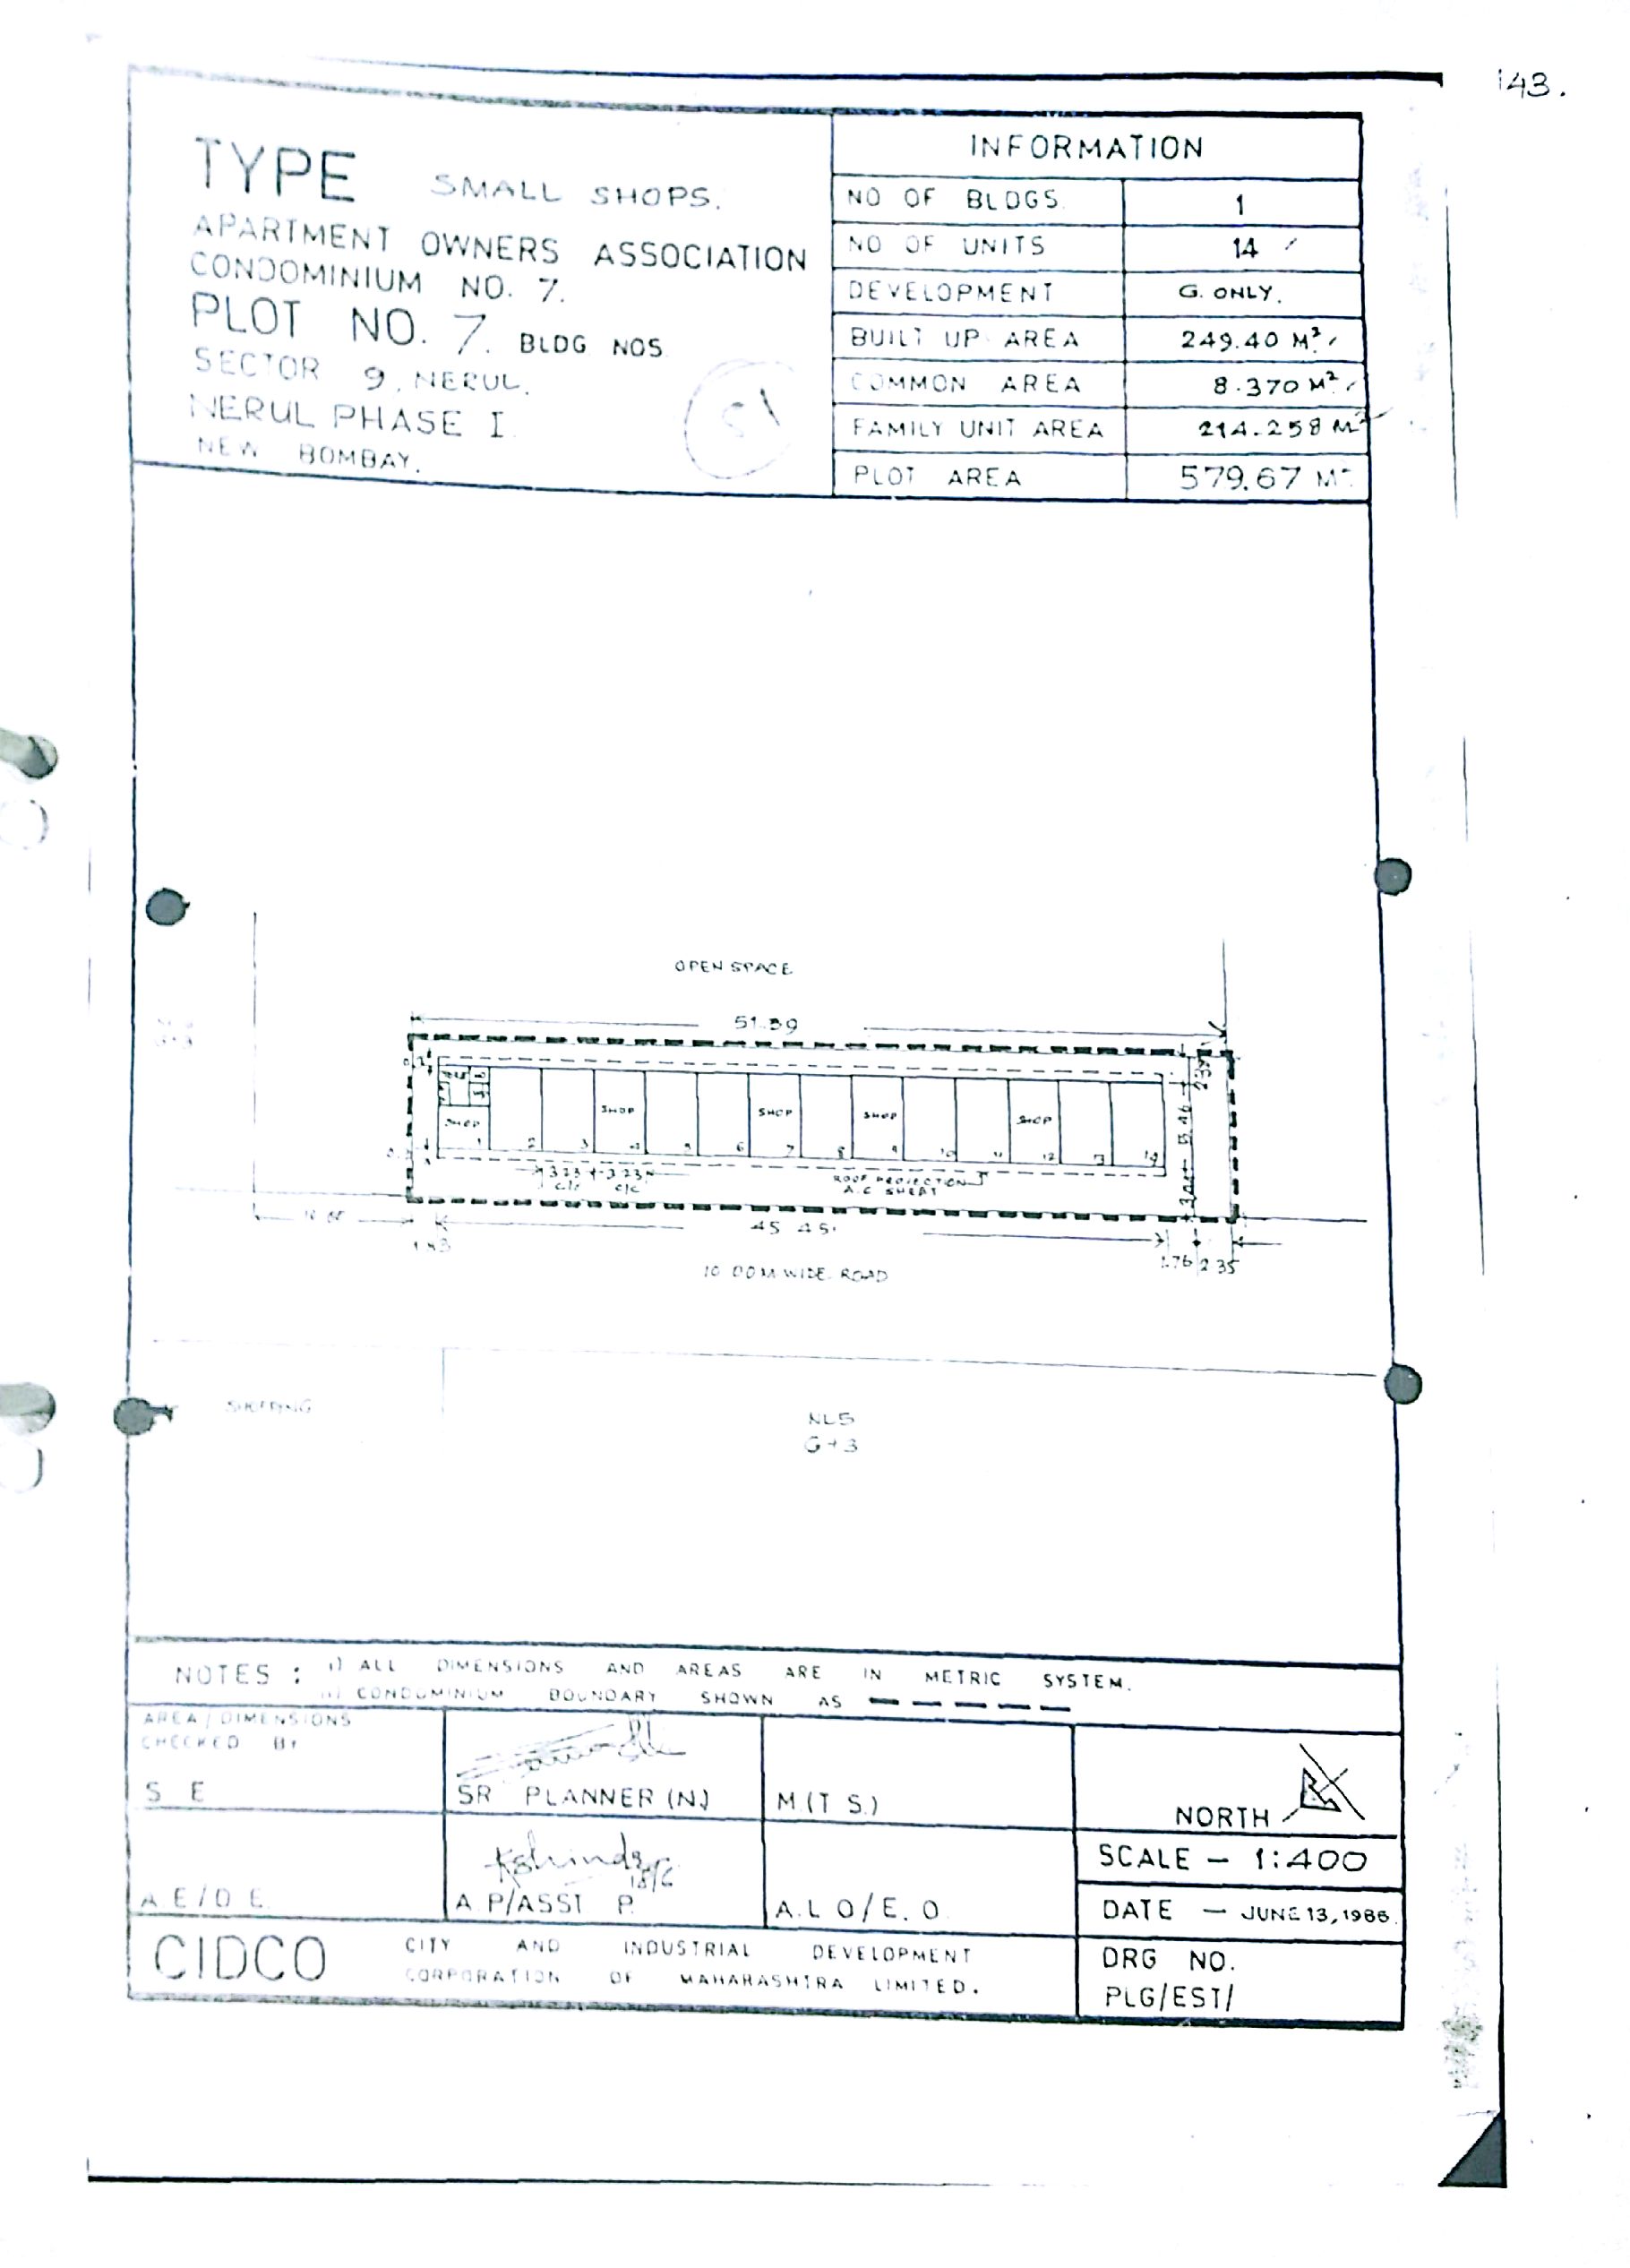 143.
TYPE SMALL SHOPS.
APARTMENT OWNERS ASSOCIATION
CONDOMINIUM NO. 7.
PLOT NO. 7. BLDG NOS
SECTOR 9, NERUL.
NERUL PHASE I
NEW BOMBAY.
INFORMATION
NO OF BLDGS. 1
NO OF UNITS 14
DEVELOPMENT G. ONLY.
BUILT UP AREA 249.40 M²
COMMON AREA 8.370 M²
FAMILY UNIT AREA 214.258 M²
PLOT AREA 579.67 M²
OPEN SPACE
51.39
2.35
SHOP SHOP SHOP SHOP
SHOP
5.46
1 2 3 4 5 6 7 8 9 10 11 12 13 14
3.23 3.23
c/c c/c
ROOF PROJECTION
A.C SHEAT
45.45
1.83
1.76 2.35
10.00M WIDE ROAD
SHOPPING
NL5
G+3
NOTES : i) ALL DIMENSIONS AND AREAS ARE IN METRIC SYSTEM.
ii) CONDOMINIUM BOUNDARY SHOWN AS
AREA/DIMENSIONS
CHECKED BY
S E
SR PLANNER (N)
M (T S.)
NORTH
SCALE – 1:400
15/6
A.E/D.E.
A.P/ASST P.
A.L O/E.O.
DATE – JUNE 13, 1986.
CIDCO CITY AND INDUSTRIAL DEVELOPMENT
CORPORATION OF MAHARASHTRA LIMITED.
DRG NO.
PLG/EST/